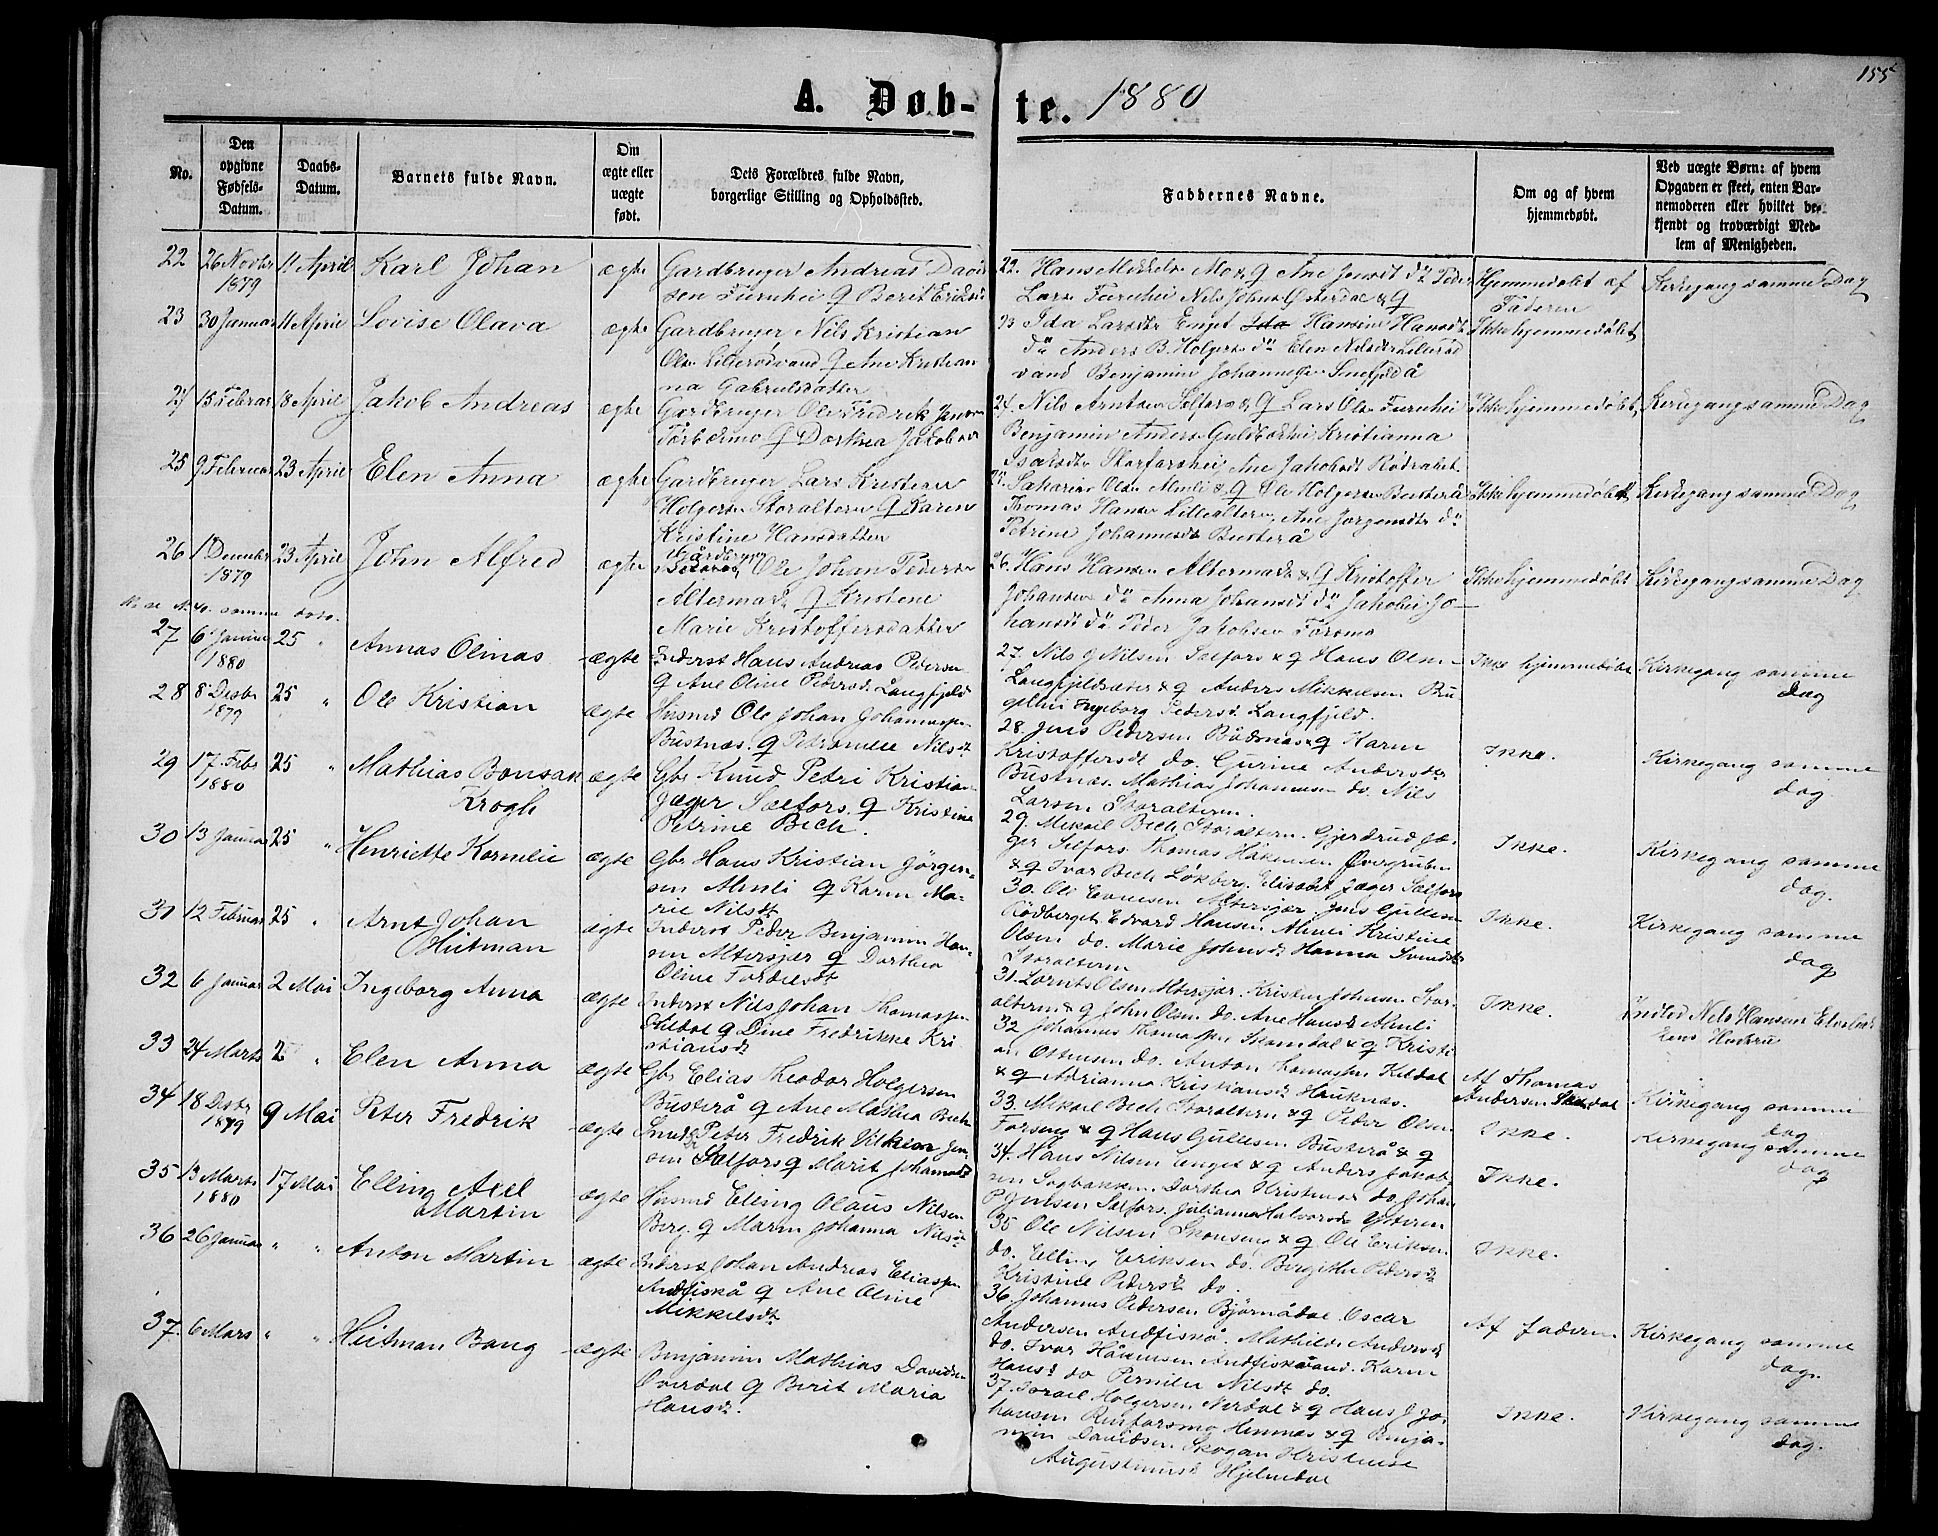 155
A. Døb-te. 1880
No.
Den opgivne Fødsels-Datum.
Daabs-Datum.
Barnets fulde Navn.
Om ægte eller uægte født.
Dets Forældres fulde Navn, borgerlige Stilling og Opholdssted.
Faddernes Navne.
Om og af hvem hjemmedøbt.
Ved uægte Børn: af hvem Opgaven er skeet, enten Barnemoderen eller hvilket bekjendt og troværdigt Medlem af Menigheden.
22 26 Novbr 1879 11 April Karl Johan ægte Gardbruger Andreas Davidsen Furuhei & Berit Eriksd
22. Hans Mikkels Mo & Q Ane Jensdt do Peder Lars Furuhei Nils Johns Østerdal & Q
Hjemmedøbt af Faderen Kirkegang samme Dag
23 30 Januar 11 April Lovise Olava ægte Gardbruger Nils Kristian Olsn Lillerødvand Q Ane Kristianna Gabrielsdatter
23 Ida Larsdtr Enget Hansine Hansdt do Anders B. Holgers do Elen Nilsdtr Lillerødvand Benjamin Johannesen
Ikke hjemmedøbt
24 15 Februar 18 April Jakob Andreas ægte Gardbruger Ole Fredrik Jensen Q Dorthea Jakobs
24. Nils Arntsen Selfors & Q Lars Olsn Furuhei Benjamin Anders Kristianna Isaksdtr Storforshei, Ane Jakobsdt Rødraket
Ikke hjemmedøbt, Kirkegang samme Dag
25 9 Februar 23 April Elen Anna ægte Gardbruger Lars Kristian Holgersn Storaltern Q Karen Kristine Hansdatter
Olsn Almli & Q Ole Holgersn Busterå Thomas Hansn Lillealtern, Ane Jørgensdtr do Petrine Johannesdt Busterå
Ikke hjemmedøbt Kirkegang samme Dag
26 1 December 1879 23 April John Alfred ægte Gårdbr Ole Johan Pedersn Altermark Q Kristine Marie Kristoffersdatter
26. Hans Hansen Altermark & Q Kristoffer Johansen do Anna Johansdt do Jakobie Johansdt do Peder Jakobsen Forsmo
Ikke hjemmedøbt Kirkegang samme Dag
27 6 Januar 1880 25 " Annas Olinas ægte Inderst Hans Andreas Pedersen Q Ane Oline Pedersd Langfjeld
27. Nils J Nilsen Selfors & Q Hans Olsn Langfjeldsæter & Q Anders Mikkelsen Ingeborg Pedersd. Langfjeld.
Ikke hjemmedøbt Kirkegang samme dag
28 8 Desbr 1879 25 " Ole Kristian ægte Husmd Ole Johan Johannessen Bustnæs. Q Petromelie Nilsdt
28. Jens Pedersen Båsmo & Q Karen Kristoffersdt do. Gurine Andersdtr Bustnæs. Mathias Johannessen do. Nils Larsen Storaltern.
Ikke. Kirkegang samme dag.
29 17 Febr 1880 25 " Mathias Bonsak Krogh ægte Gbr Knud Petri Kristian Jæger Selfors. Q Kristine Petrine Bech.
29. Mikael Bech Storaltern. Gjerdrud Jæger Selfors. Thomas Håkensen Øvergruben & Q Ivar Bech Løkberg. Elisabet Jæger Selfors
Ikke. Kirkegang samme dag.
30 13 Januar 25 " Henriette Kornelie ægte Gbr Hans Kristian Jørgensen Almli Q Karen Marie Nilsdt
30. Ole Evensen Altersjær Jens Gullesn Rødberget Edvard Hansen Almli Kristine Olsen do. Marie Johnsd. Hanna Svendsd Storaltern
Ikke. Kirkegang samme dag
31 12 Februar 25 " Arnt Johan Hitman ægte Inderst Peder Benjamin Hansen Altersjær Q Dorthea Oline Tordlesdt
31. Lornts Olsen Altersjær. Kristen Johnsen Storaltern & Q John Olsen do. Ane Hansd Almli
Ikke. Indled Nils Hansens
32 6 Januar 2 Mai Ingeborg Anna ægte Inderst Nils Johan Thomassen Kildal Q Dine Fredrikke Kristiansdt
32 Johannes Thomassen Skamdal & Q Ostensen do. Anton Thomassen Kildal & Q Adrianna Kristiansd Hauknæs.
Af Thomas Andersen Kirkegang samme dag
33 24 Marts 2 " Elen Anna ægte Gbr Elias Theodor Holgersen Busterå Q Ane Mathea Bech
33. Mikael Bech Storaltern & Q Peder Olsen & Q Hans Gullesen Busterå & Q
Ikke Kirkegang samme dag
34 18 Desbr 1879 9 Mai Peter Fredrik ægte Peter Fredrik Vilhelm Jensen Selfors Q Marit Johansdt
34. Hans Nilsen Enget & Q Anders Jakobsen Sagbakken Dorthea Kristensd do Johan P Jensen Selfors. Julianna Halvorsd Ytteren
Ikke.
35 13 Marts 1880 17 Mai Elling Axel Martin ægte Husmd Elling Olaus Nilsen Berg. Q Maren Johanna Nilsdt
35 Ole Nilsen Skonseng & Q Ole Eriksen do. Elling Eriksen do. Birgithe Pedersdt Kristine Pedersdt do.
Ikke.
36 26 Januar " " Anton Martin ægte Inderst Johan Andreas Eliassen Andfiskå Q Ane Oline Mikkelsdt
36. Johannes Pedersen Bjørnådal. Oscar Andersen Andfiskå. Mathilde Andersd do. Ivar Håkensen Andfiskåvand. Karen Hansd do Pernilie Nilsdt do.
Af faderen Kirkegang samme dag.
37. 6 Mars " " Hitman Bang ægte Benjamin Mathias Davidsen Overdal Q Berit Maria Hansdt.
37. Israel Holgersen Nerdal & Q Hans J Johansen Reinforsmo & Q Benjamin Davidsen Skogan Kristense Augustinusd Hjelmedal
Ikke. Kirkegang samme dag.